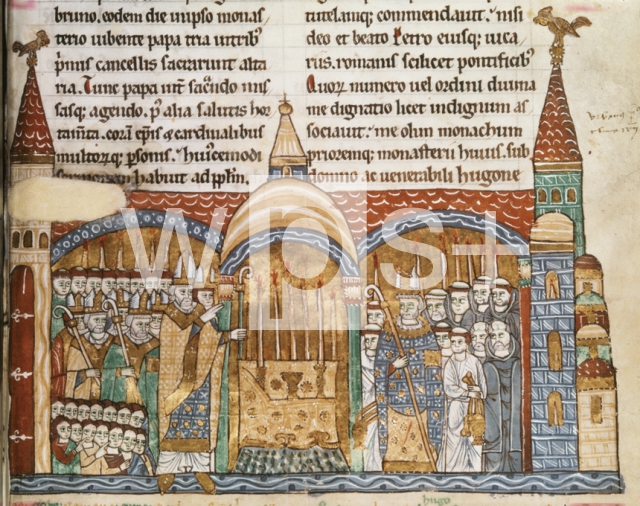 bruno. eodem die in ipso monas
terio iubente papa tria ultribꝰ
pimis cancellis sacrarunt alta
ria. Tunc papa int̄ sac̄ndū mis
sasq; agendo. p̱ alia salutis hor
tam̄ta. corā ep̄is ⁊ cardinalibus
multorq; psonis. huiꝰcemodi
habuit ad pplm̄.
tutelamq; commendauit. nisi
deo et beato Petro eiusq; uica
rus. romanis scilicet pontificibꝰ
Quorꝝ numero uel ordini diuina
me dignatio licet indignum as
sociauit. me olim monachum
prioremq; monasterii huius. sub
domno ac uenerabili hugone
wps+
hugo